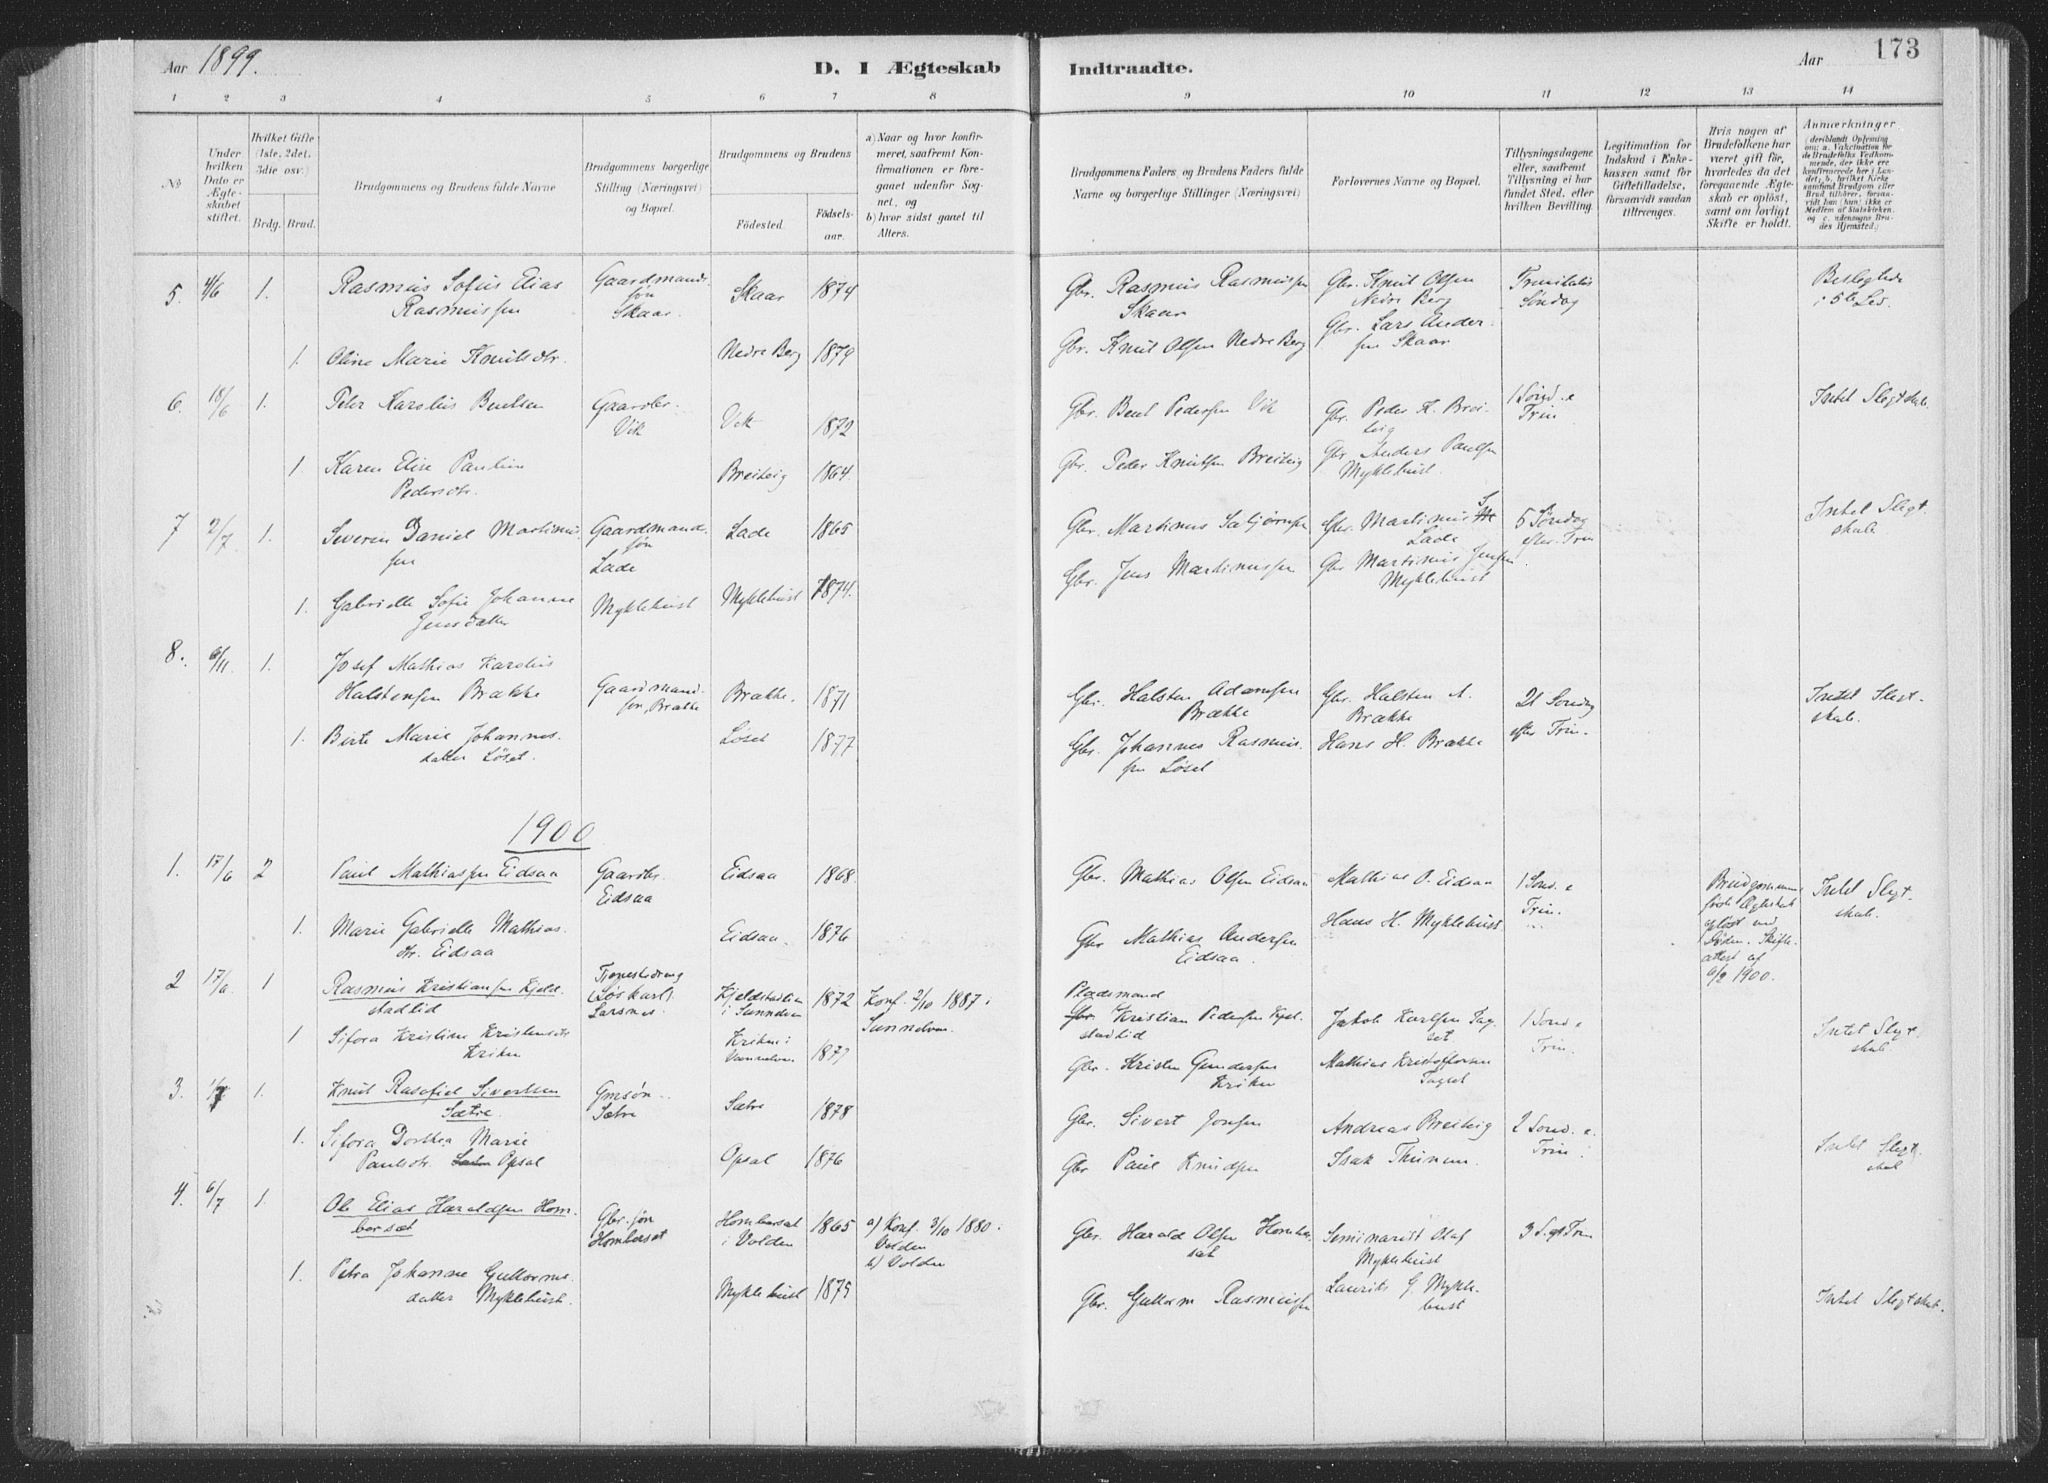 Aar 1899.
D. I Ægteskab Indtraadte.
Aar 173
1 2 3 4 5 6 7 8 9 10 11 12 13 14
No
Under hvilken Dato er Ægteskabet stiftet.
Hvilket Gifte (1ste, 2det, 3die osv.)
Brdg. Brud.
Brudgommens og Brudens fulde Navne
Brudgommens borgerlige Stilling (Næringsvei) og Bopæl.
Brudgommens og Brudens
Fødested. Fødselsaar.
a) Naar og hvor konfirmeret, saafremt Konfirmationen er foregaaet udenfor Sognet, og
b) hvor sidst gaaet til Alters.
Brudgommens Faders, og Brudens Faders fulde Navne og borgerlige Stillinger (Næringsvei)
Forlovernes Navne og Bopæl.
Tillysningsdagene eller, saafremt Tillysning ei har fundet Sted, efter hvilken Bevilling.
Legitimation for Indskud i Enkekassen samt for Giftetilladelse, forsaavidt saadan tiltrænges.
Hvis nogen af Brudefolkene har været gift før, hvorledes da det foregaaende Ægteskab er opløst, samt om lovligt Skifte er holdt.
Anmærkninger
(deriblandt Oplysning om: a. Vakcination for de Brudefolks Vedkommende, der ikke ere konfirmerede her i Landet; b. hvilket Kirkesamfund Brudgom eller Brud tilhører, forsaavidt han (hun) ikke er Medlem af Statskirken, og c. udensogns Brudes Hjemsted.)
5. 4/6 1. Rasmus Sofus Elias Rasmussen Gaardmandssøn Skaar. Skaar 1874 Gbr. Rasmus Rasmussen Skaar Gbr. Knut Olsen Nedre Berg Trinitatis Søndag Beslegtede i 5te Led.
1. Oline Marie Knutsdtr. Nedre Berg 1879 Gbr. Knut Olsen Nedre Berg Gbr. Lars Andersen Skaar
6. 18/6 1. Peter Karolus Bentsen Gaardbr. Vik Vik 1872 Gbr. Bent Pedersen Vik Gbr. Peder K. Breiteig 1 Sønd. e Trin Intet Slegtskab.
1 Karen Elise Pauline Pedersdtr. Breiteig 1864. Gbr. Peder Knutsen Breiteig Gbr Anders Paulsen Myklebust.
7 2/7 1. Severin Daniel Martinussen Gaardmandssøn Lade Lade 1865 Gbr. Martinus Sæbjørnsen Gbr. Martinus S. Lade 5 Søndag efter Trin. Intet Slegtskab.
1. Gabrielle Sofie Johanne Jensdatter Myklebust Myklebust 1874. Gbr. Jens Martinussen Gbr Martinus Jensen Myklebust
8. 6/11 1. Josef Mathias Karolus Halstensen Brække Gaardmandssøn, Brække Brække. 1871 Gbr. Halsten Adamsen Brække Gbr. Halsten A. Brække 21 Søndag efter Trin. Intet Slegtskab.
1. Berte Marie Johannesdatter Løset. Løset 1877 Gbr. Johannes Rasmussen Løset Hans H. Brække
1900
1. 17/6 2 Paul Mathiassen Eidsaa Gaardbr. Eidsaa Eidsaa 1868. Gbr. Mathias Olsen Eidsaa Mathias O. Eidsaa 1 Sønd. e Trin. Brudgommens første Ægteskab opløst ved Døden. Skifteattest af 6/2 1900. Intet Slegtskab.
1. Marie Gabrielle Mathiasdtr. Eidsaa Eidsaa. 1876 Gbr Mathias Andersen Eidsaa. Hans H. Myklebust
2 17/6 1 Rasmus Kristiansen Kjeldstadlid Tjenestedreng (Løskarl) Larsnes. Kjeldstadlien i Sunnelven 1872 Konf. 2/10 1887 i Sunnelven. Pladsmand Gbr. Kristian Pedersen Kjelstadlid Jakob Karlsen Tagset 1 Sønd e Trin. Intet Slegtskab.
1 Sifora Kristine Kristensdtr Kriken Kriken i Vannelven 1877 Gbr. Kristen Gundersen Kriken Mathias Kristoffersen Tagset
3. 1/7 1. Knut Rasofiel Sivertsen Sætre Gmsøn Sætre Sætre 1878 Gbr. Sivert Jonsen Andreas Breiteig 2 Sønd. e. Trin. Intet Slegtskab
1. Sifora Dorthea Marie Paulsdtr. Opsal Opsal 1876 Gbr Paul Knudsen Isak Thunem
4. 6/7 1. Ole Elias Haraldsen Homborset Gbr. søn Homborset Homborset i Volden 1865 a) Konf. 3/10 1880 i Volden b) Volden Gbr. Harald Olsen Homborset Seminarist Olaf Myklebust 3 S. e. Trin
1. Petra Johanne Guttormsdatter Myklebust. Myklebust 1875 Gbr. Guttorm Rasmussen Laurits G. Myklebust Intet Slegtskab.